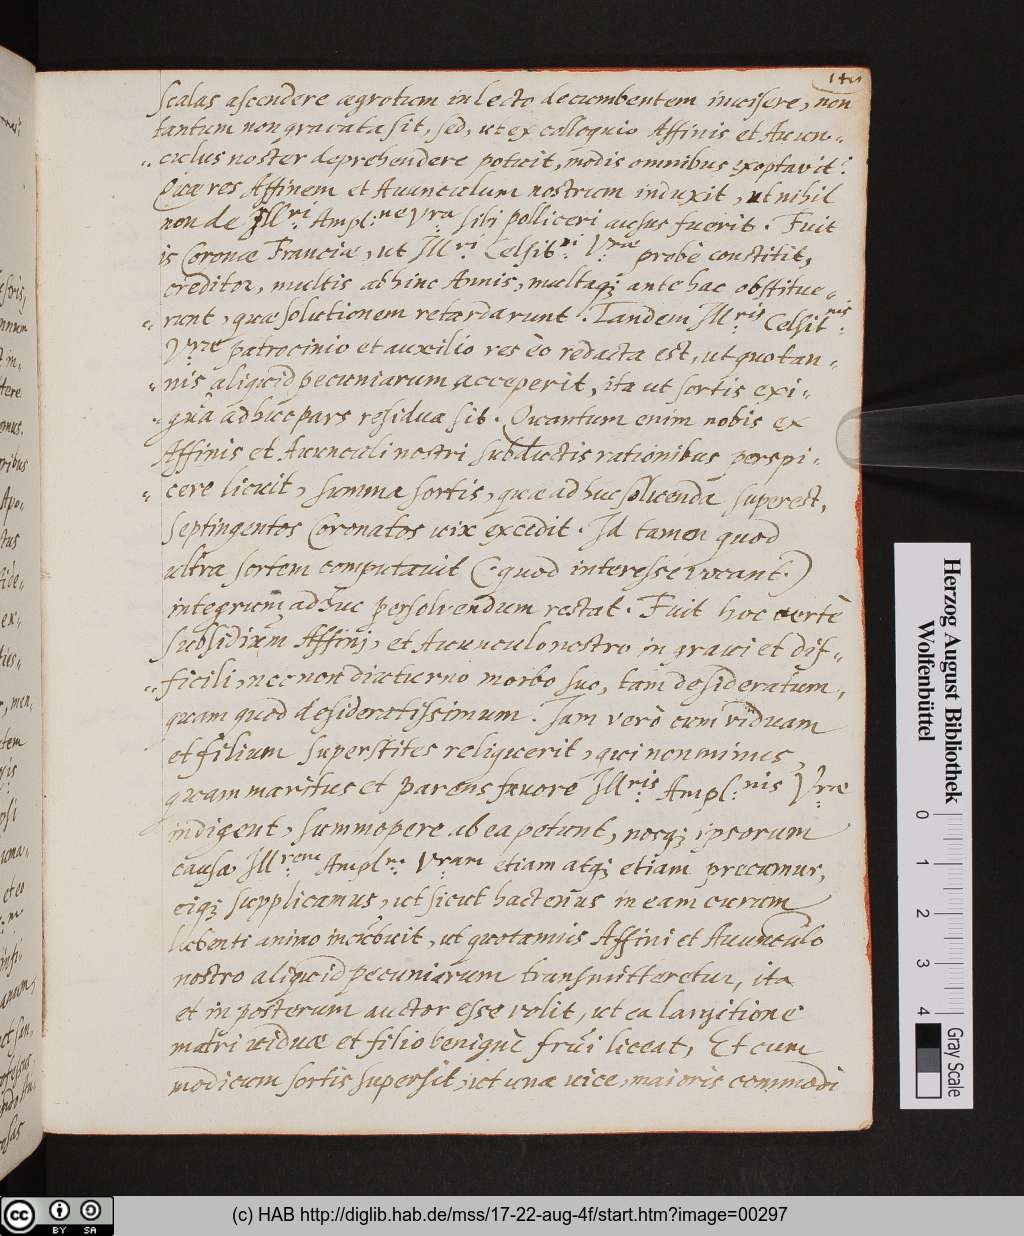 scalas ascendere ægrotum in lecto decumbentem invisere, non
tantum non gravata sit, sed, ut ex colloquio Affinis et Avun-
-culus noster deprehendere potuit, modis omnibus exoptavit:
Quæ res Affinem et Avunculum nostrum induxit, ut nihil
non de Ill:ri Ampl:ne Vra sibi polliceri ausus fuerit. Fuit
is Coronæ Franciæ, ut Ill:ri Celsit:ni V:ræ probè constitit,
creditor, multis abhinc Annis, multaq; ante hac obstitue-
-runt, quæ solutionem retardarunt. Tandem Ill:ris Celsit:nis
V:ræ patrocinio et auxilio res èo redacta est, ut quotan-
-nis aliquid pecuniarum acceperit, ita ut sortis exi-
-guâ adhuc pars residua sit. Quantum enim nobis ex
Affinis et Avunculi nostri subductis rationibus perspi-
-cere licuit, summa sortis, quæ adhuc solvenda superest,
septingentos Coronatos vix excedit. Id tamen quod
ultra sortem computavit (:quod interesse vocant:)
integrum adhuc persolvendum restat. Fuit hoc certè
subsidium Affini, et Avunculo nostro in gravi et dif-
-ficili, nec non diuturno morbo suo, tam desideratum,
quam quod desideratissimum. Iam verò cum viduam
et filium superstites reliquerit, qui non minus,
quam maritus et parens favore Ill:ris Ampl:nis V:ræ
indigent, summopere ab ea petunt, nosq; ipsorum
causa Ill:rem Ampl:m Vram etiam atq; etiam precamur,
eiq; supplicamus, ut sicut hactenus in eam curam
lubenti animo incubuit, ut quotannis Affini et Avunculo
nostro aliquid pecuniarum transmitteretur, ita
et in posterum auctor esse velit, ut ea largitione
matri viduæ et filio benignè frui liceat, Et cum
modicum sortis supersit, ut una vice, maioris commodi
Herzog August Bibliothek
Wolfenbüttel
0 1 2 3 4
Gray Scale
cc BY SA
(c) HAB http://diglib.hab.de/mss/17-22-aug-4f/start.htm?image=00297